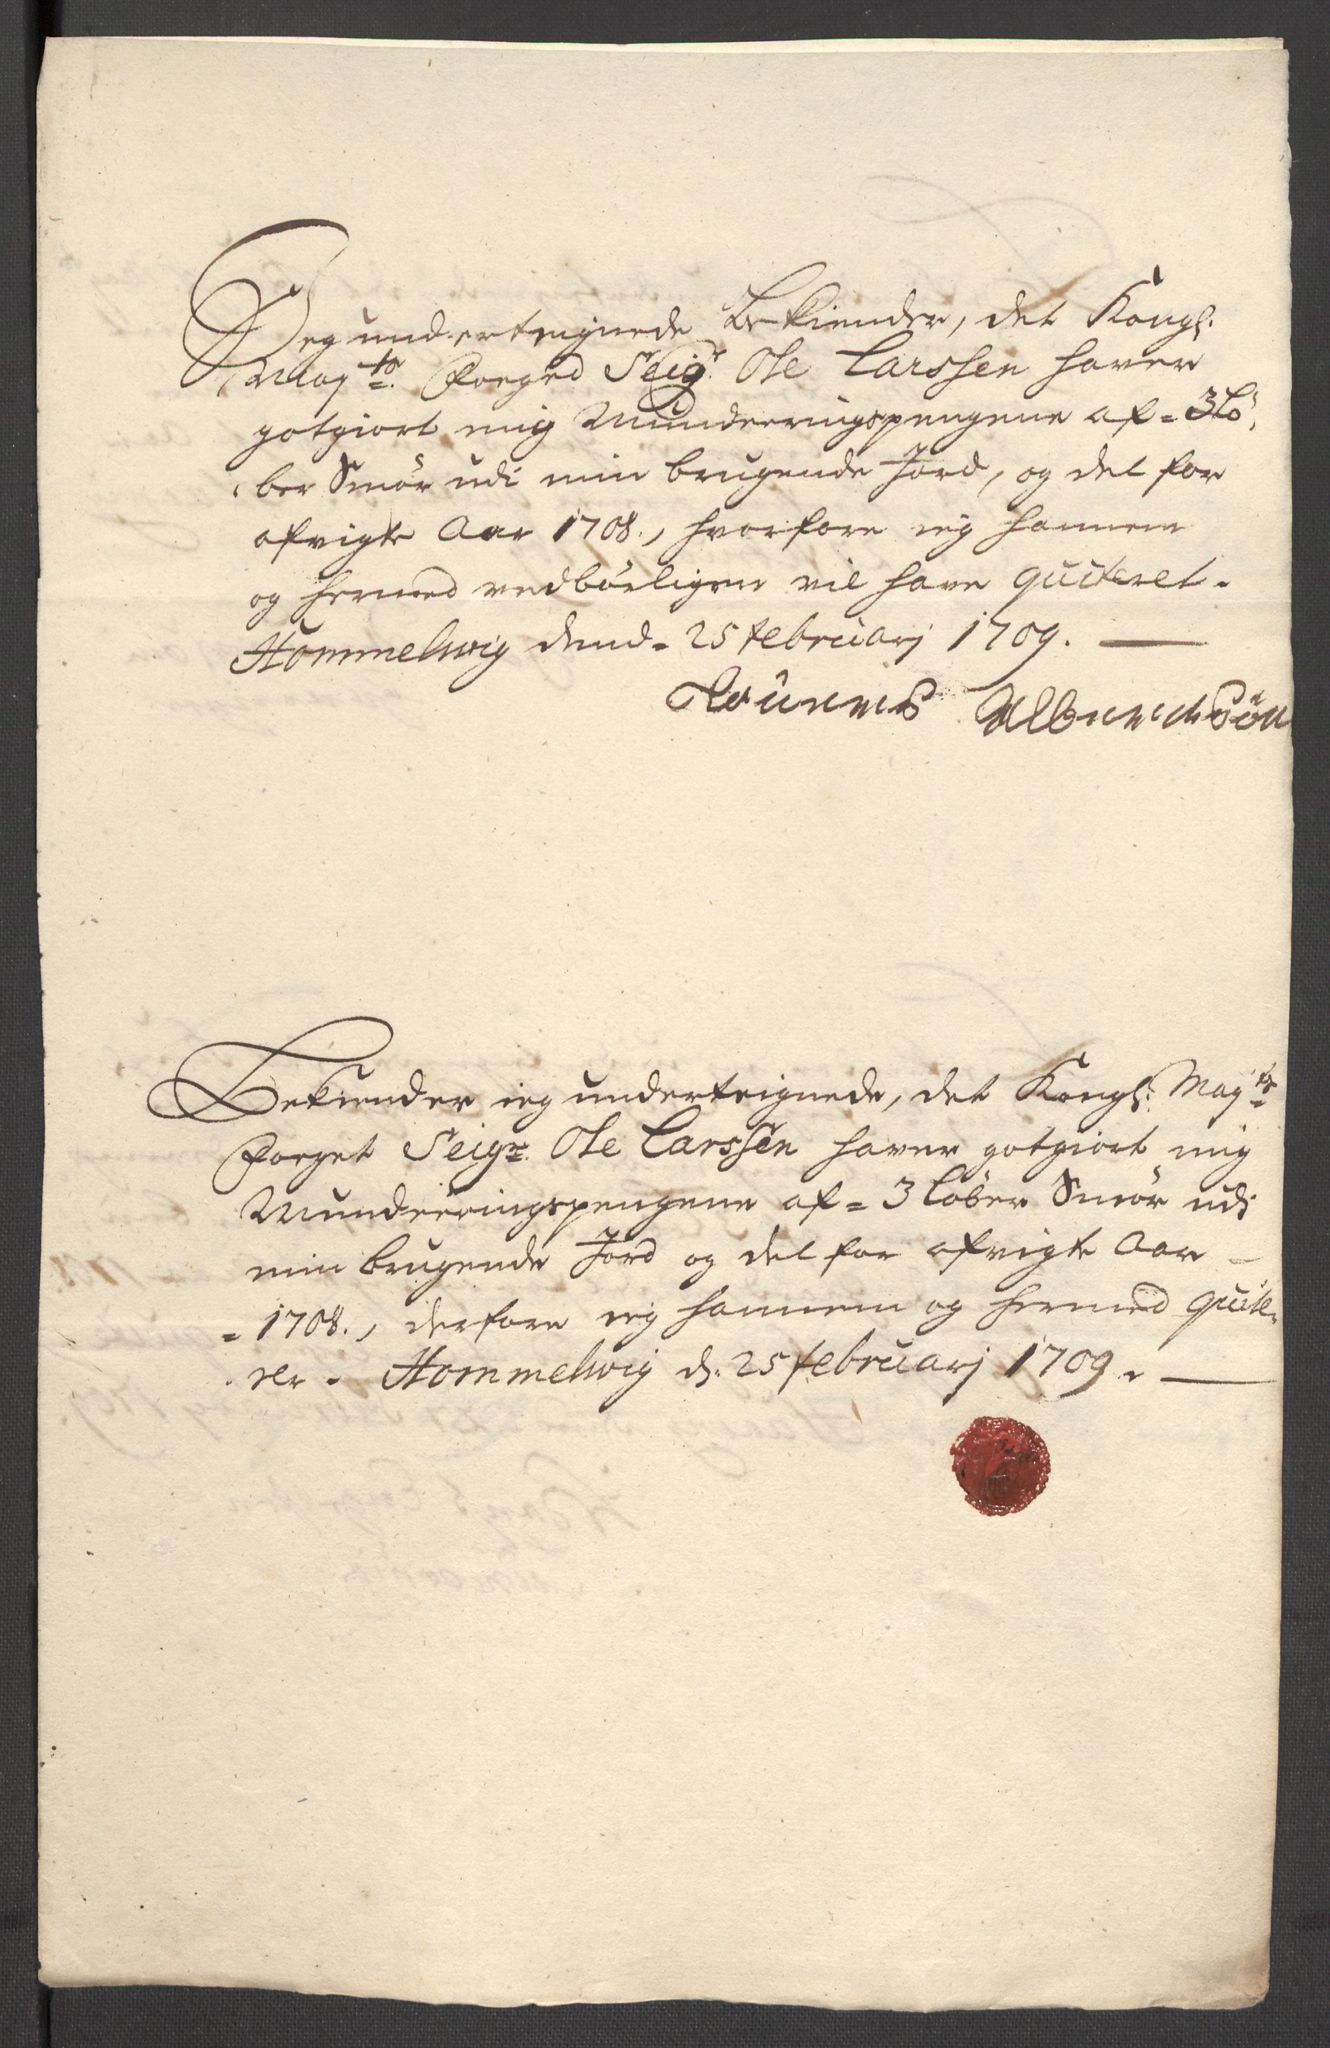 Jeg underteignede Bekiender, det Kongl:
May:ts Foeged Seigr. Ole Larssen haver
gotgiort mig Munderingspengene af = 3 Lö,
ber Smör udi min brugende Jord, og det for
afvigte Aar 1708., hvorfore ieg hannem
og hermed vedbörligen vil have quiteret.
Hommelwig dend. 25 februarj 1709.
Bekiender ieg underteignede, det Kongl: May:ts
Foeget Seigr. Ole Larssen haver gotgiort mig
Munderingspengene af = 3 Löber Smör udi
min brugende Jord og det for afvigte Aar
= 1708., derfore ieg hannem og hermed quite-
rer. Hommelwig d. 25 februarj 1709.